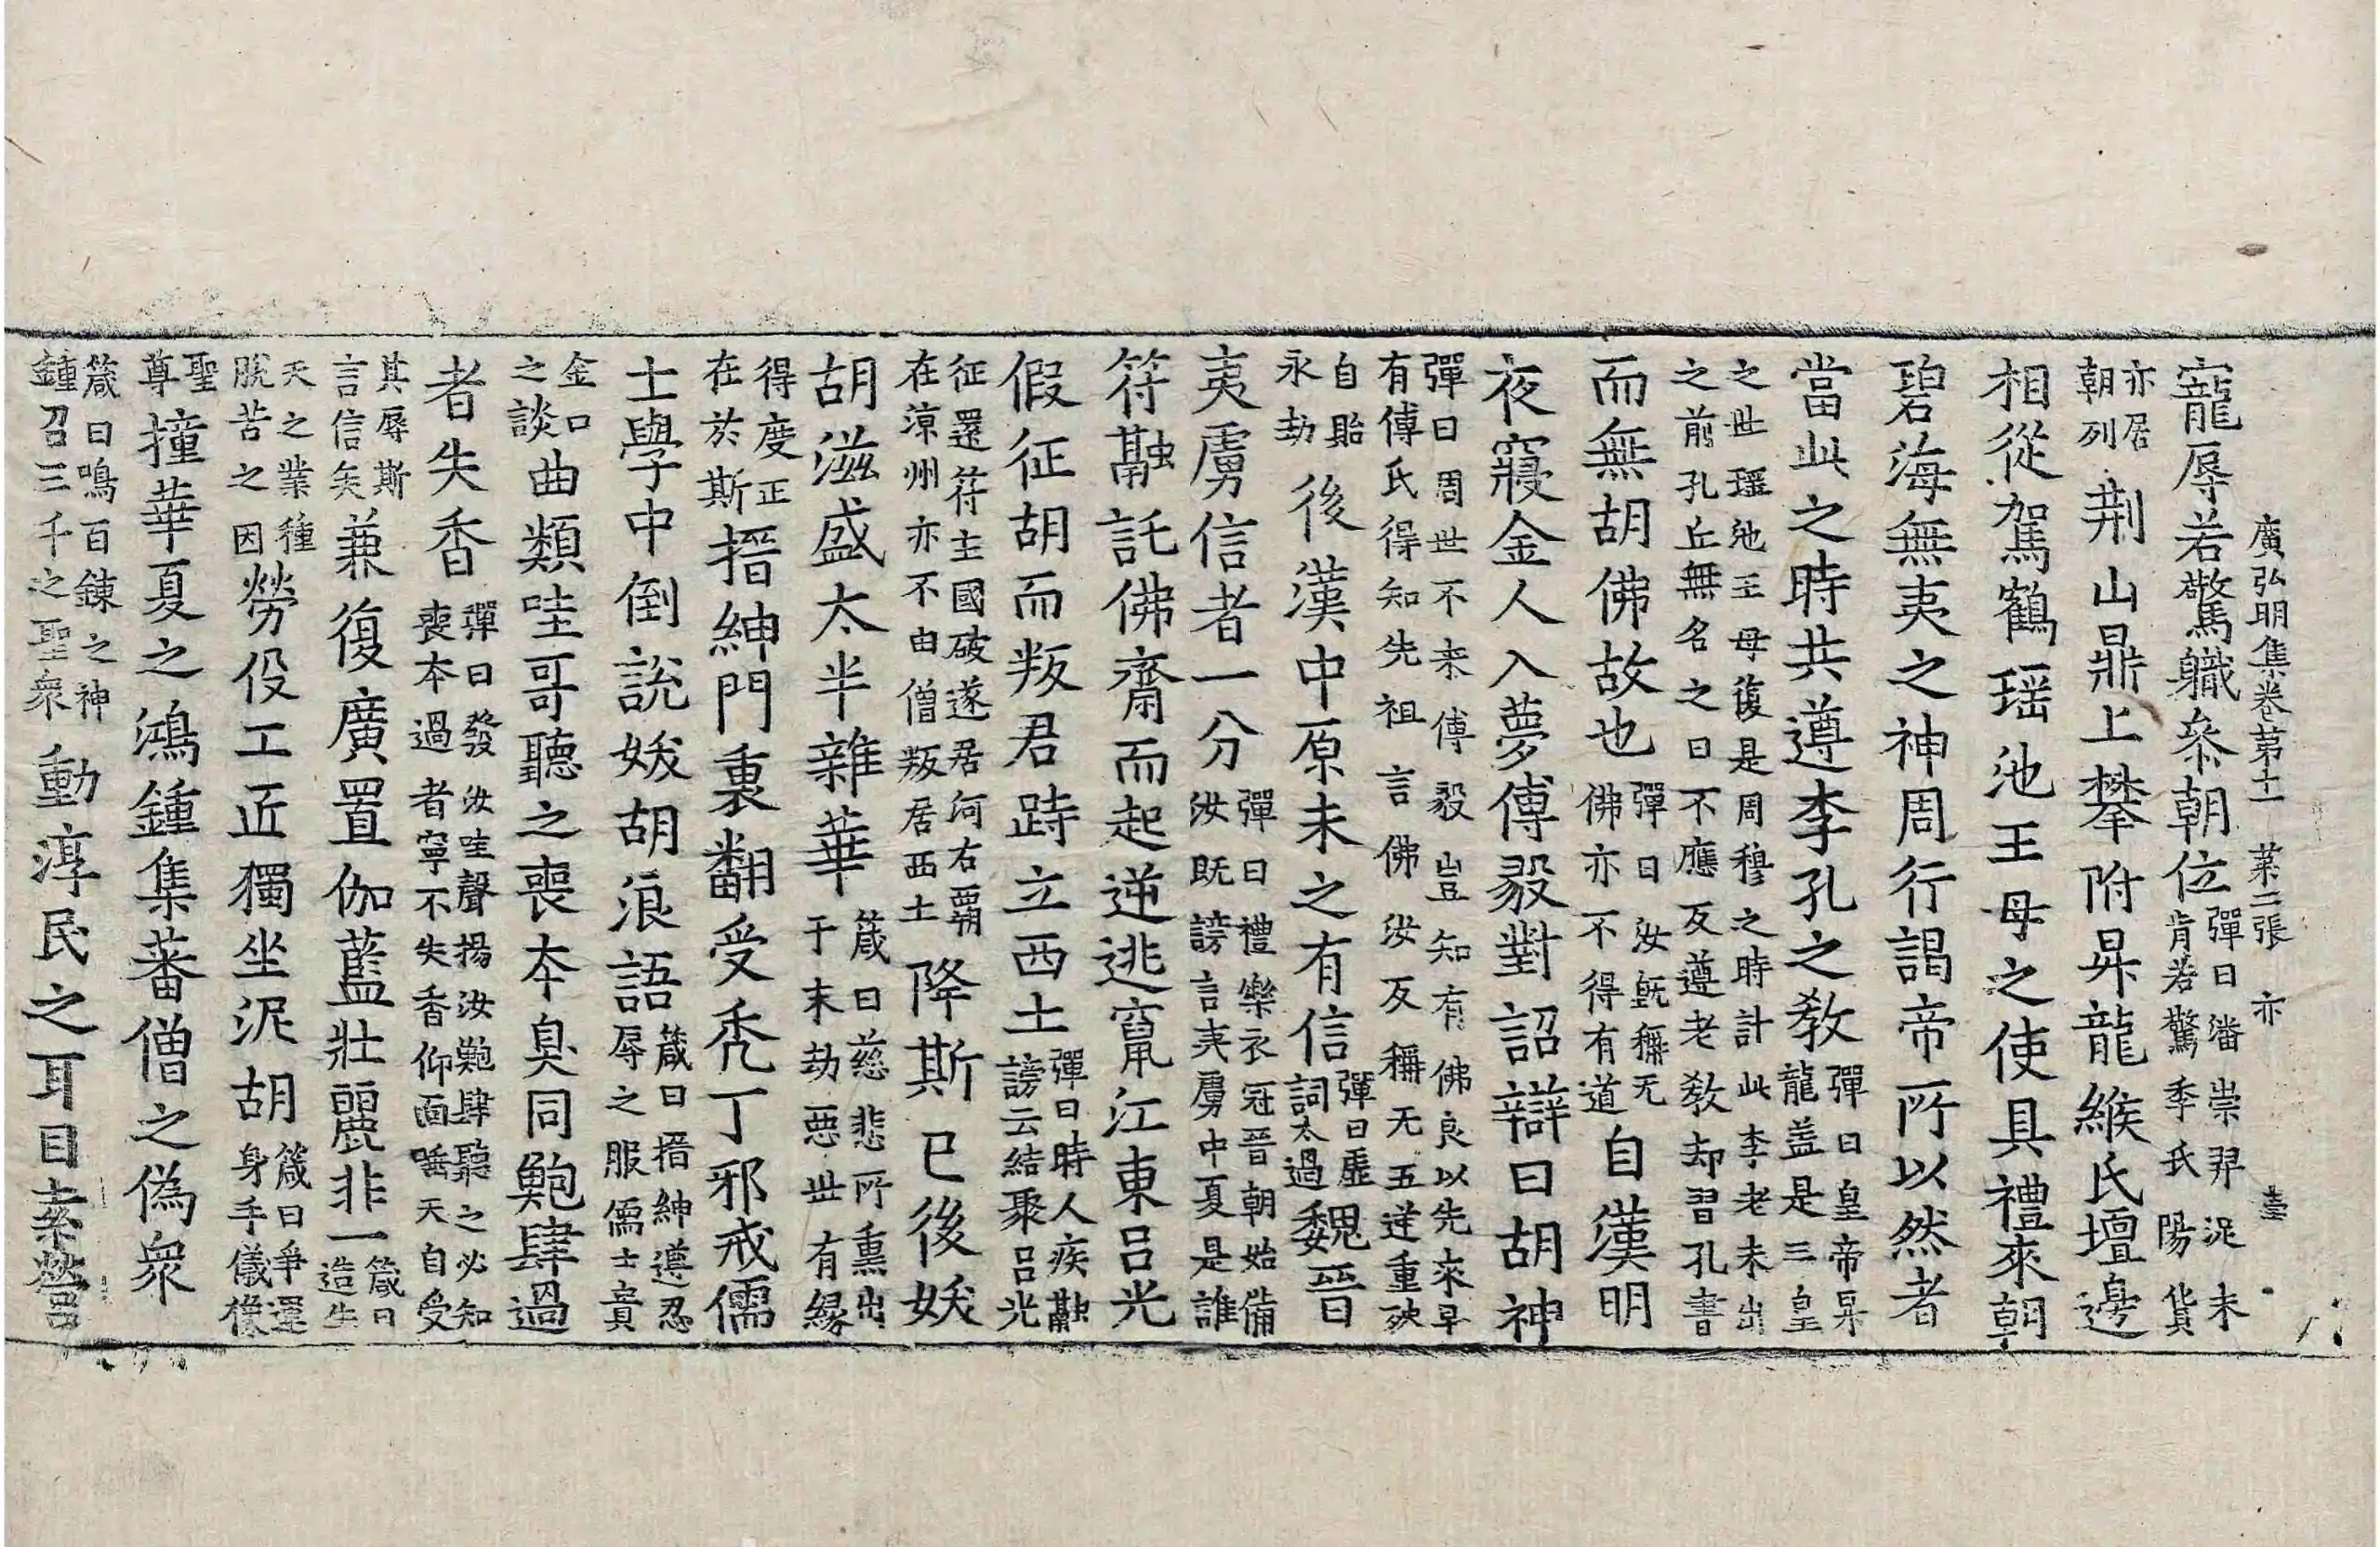 廣弘明集卷第十一 苐二張 亦
寵辱若驚職叅朝位彈曰潘崇羿浞未肯若驚季氏陽貨
亦居朝列荆山鼎上攀附昇龍緱氏壇邊
相從駕鶴瑶池王母之使具禮來朝
碧海無夷之神周行謁帝所以然者
當此之時共遵李孔之教彈曰皇帝杲龍盖是三皇
之世瑶池王母復是周穆之時計此李老未出之前孔丘無名之日不應反遵老教却習孔書
而無胡佛故也彈曰汝旣稱无佛亦不得有道自漢明
夜寢金人入夢傅毅對詔辯曰胡神
彈曰周世不来傅毅豈知有佛良以先來早有傅氏得知先祖言佛汝反稱无五逆重殃
自貽永劫後漢中原未之有信彈曰虛詞太過魏晉
夷虜信者一分彈曰禮樂衣冠晉朝始備汝既謗言夷虜中夏是誰
符融託佛齋而起逆逃竄江東呂光
假征胡而叛君跱立西土彈曰時人疾融謗云結聚呂光
征還符主國破遂居河右覇在涼州亦不由僧叛居西土降斯已後妖
胡滋盛太半雜華箴曰慈悲所熏出于末劫惡世有緣
得度正在於斯搢紳門裏翻受秃丁邪戒儒
士學中倒說妖胡浪語箴曰搢紳遵忍辱之服儒士貴
金口之談曲類哇哥聽之喪本臭同鮑肆過
者失香彈曰發汝哇聲揚汝鮑肆聽之必知喪本過者寧不失香仰面唾天自受
其辱斯言信矣兼復廣置伽藍壯麗非一箴曰造生
天之業種脫苦之因勞伇工匠獨坐泥胡箴曰爭還身手儀㨾
聖尊撞華夏之鴻鍾集蕃僧之偽衆
箴曰鳴百錬之神鍾召三千之聖衆動淳民之耳目索營